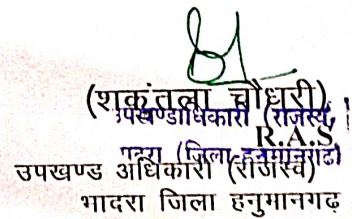 (शकुंतला चौधरी)
उपखण्डाधिकारी (राजस्व)
R.A.S.
भादरा (जिला हनुमानगढ)
उपखण्ड अधिकारी (राजस्व)
भादरा जिला हनुमानगढ़